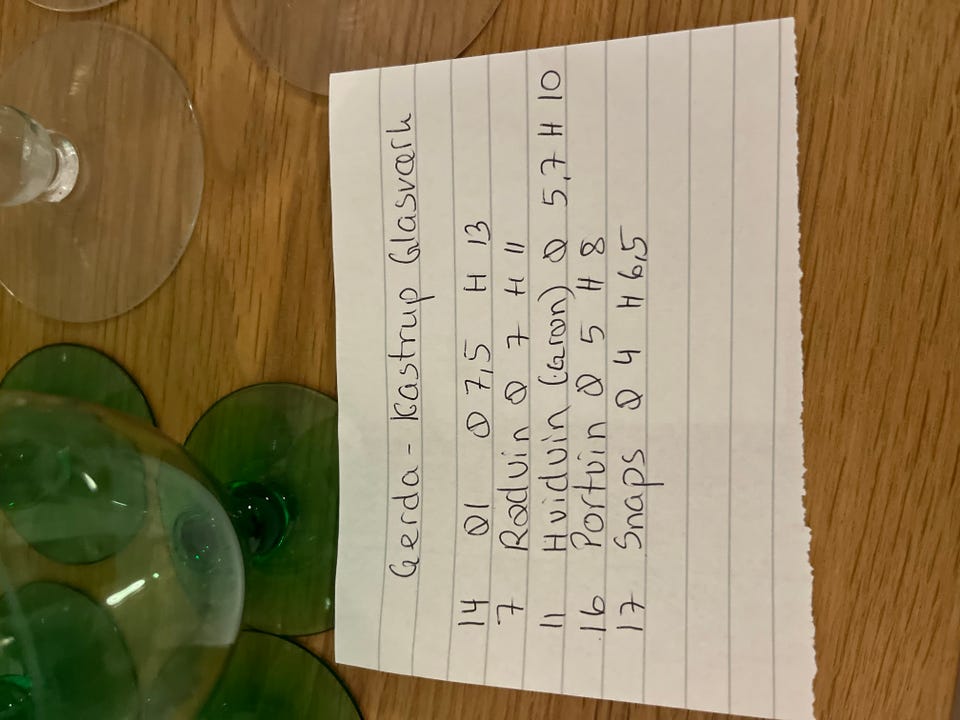 Gerda - Kastrup Glasværk
14 Øl Ø 7,5 H 13
7 Rødvin Ø 7 H 11
11 Hvidvin (grøn) Ø 5,7 H 10
16 Portvin Ø 5 H 8
17 Snaps Ø 4 H 6,5